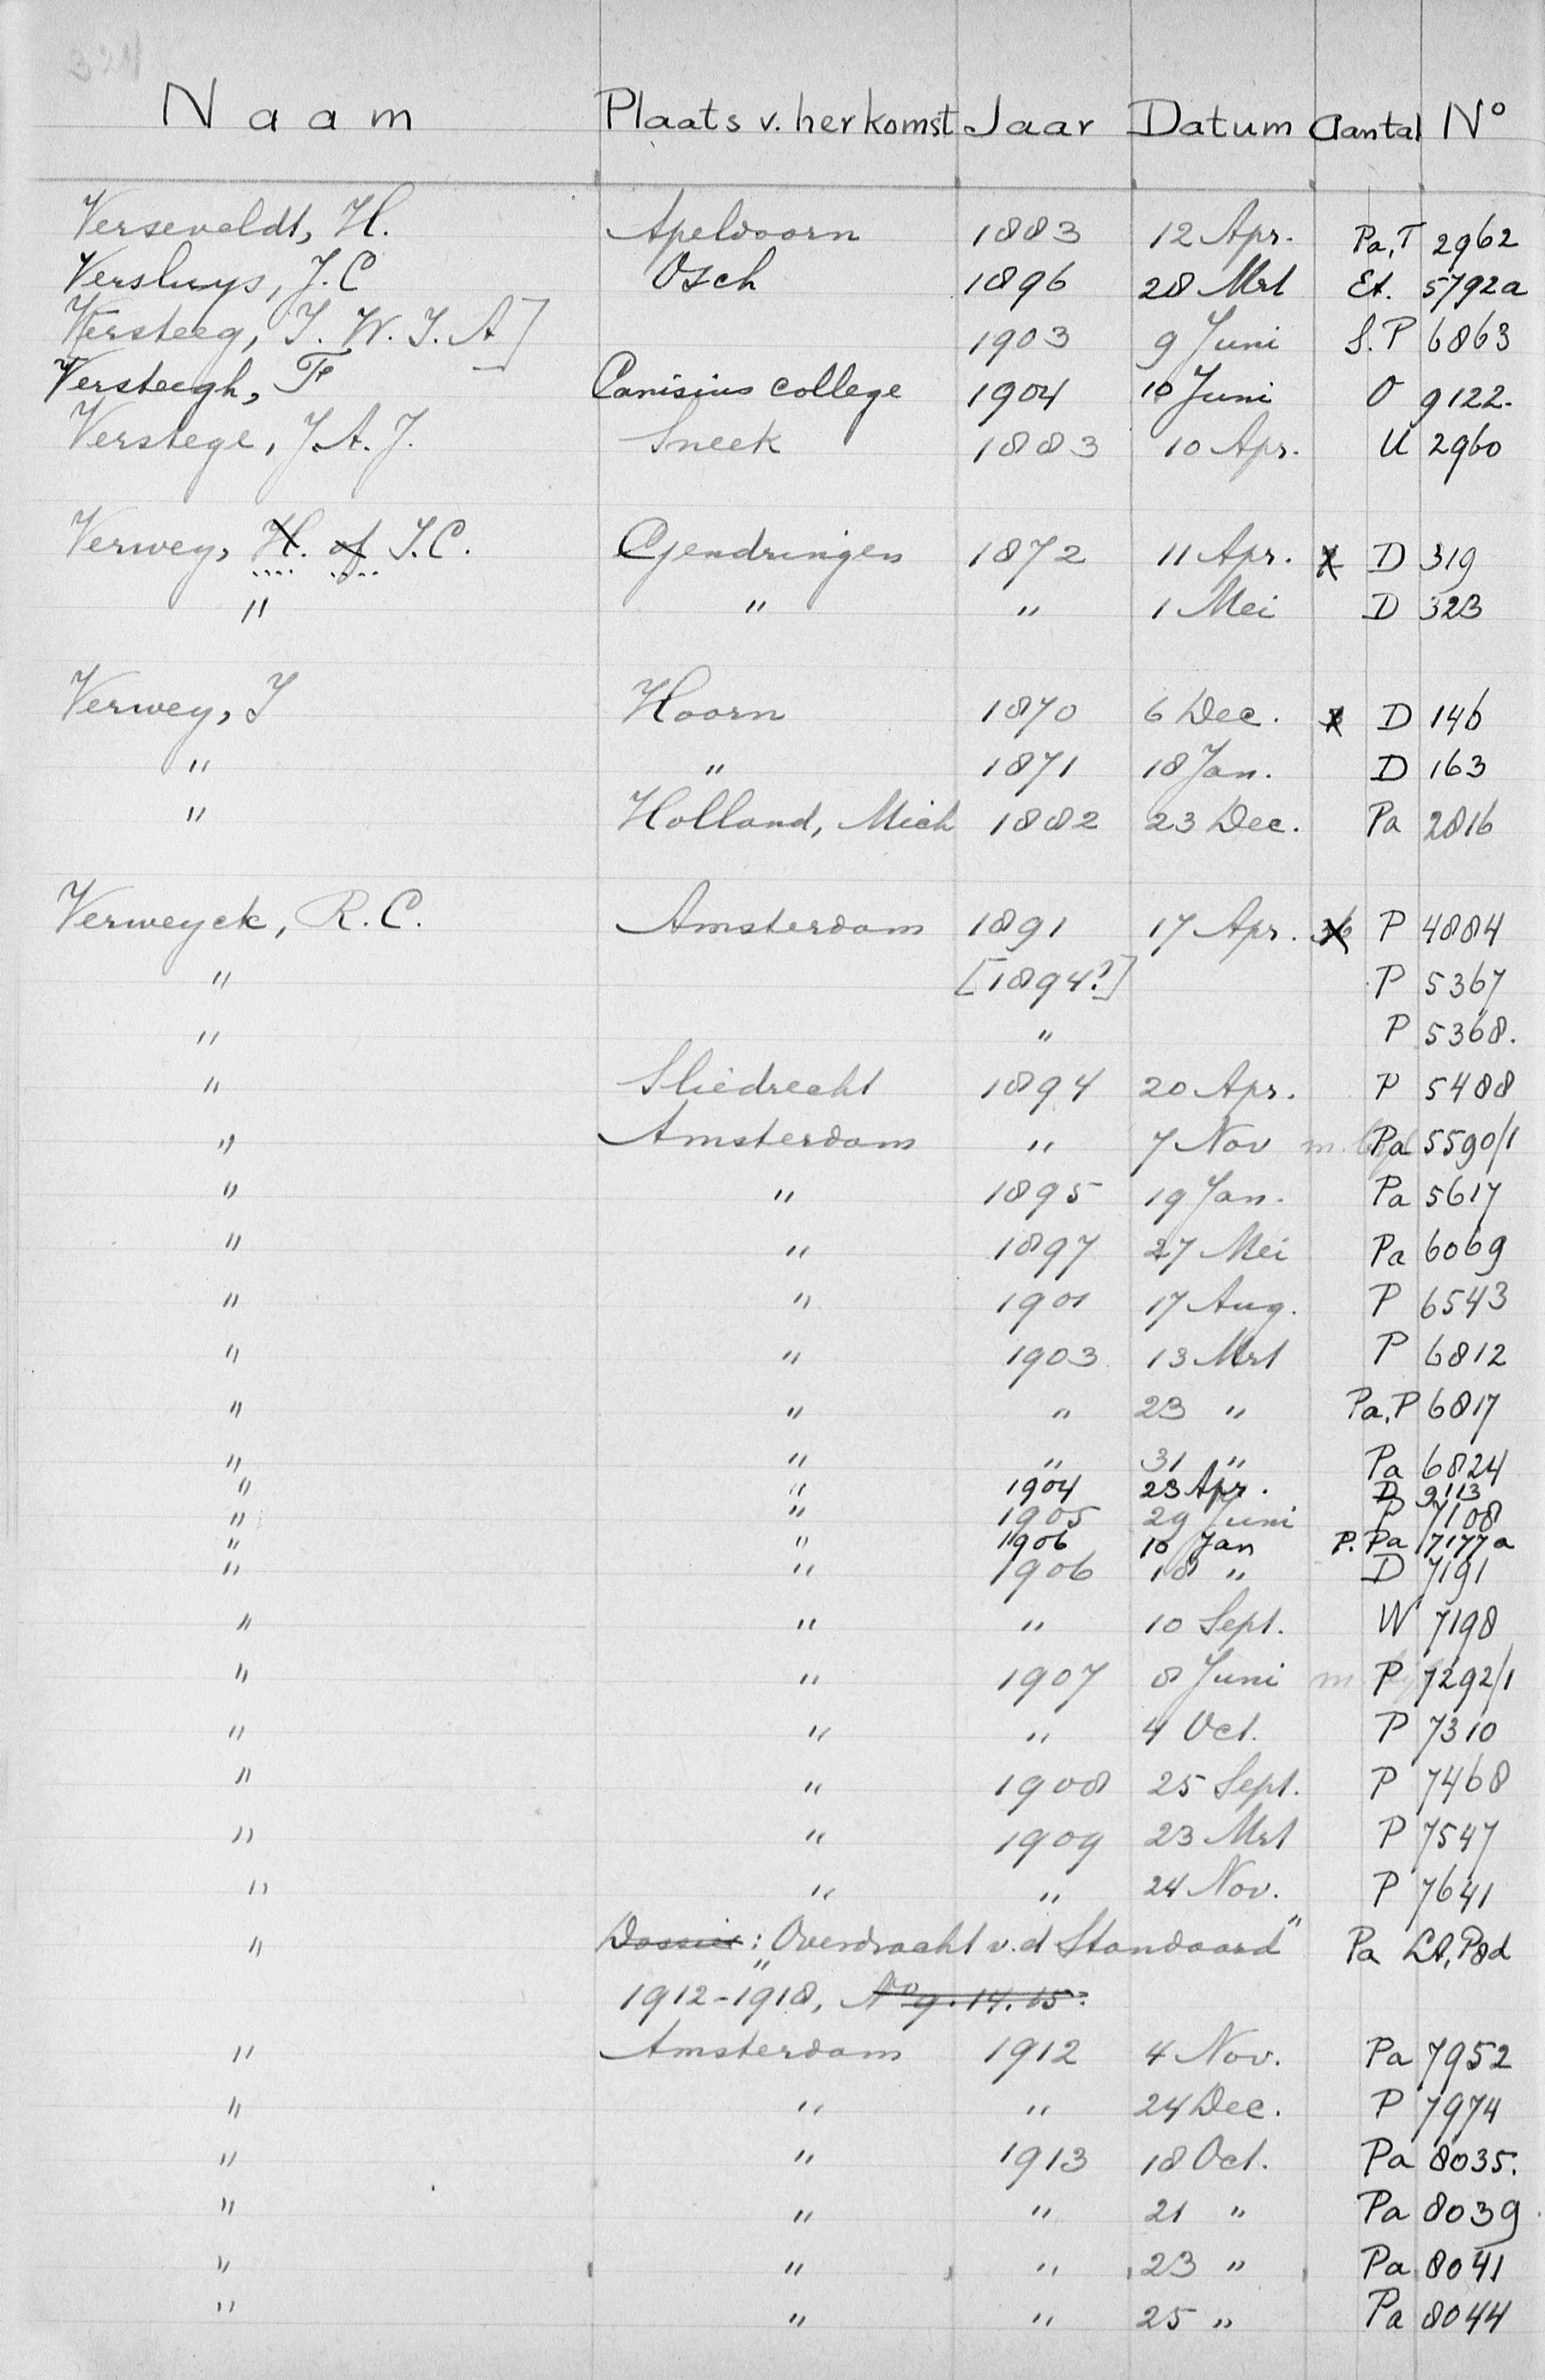 Naam Plaats v. herkomst Jaar Datum Aantal No
Verseveldt, H. Apeldoorn 1883 12 Apr. Pa, T 2962
Versluys, J. C Osch 1896 28 Mrt Et. 5792a
Versteeg, J. W. J. A] 1903 9 Juni S. P 6863
Versteegh, F Canisius college 1904 10 Juni O 9122.
Verstege, J. A. J. Sneek 1883 10 Apr. U 2960
Verwey, H. of J. C. Gendringen 1872 11 Apr. D 319
" " " 1 Mei D 323
Verwey, J Hoorn 1870 6 Dec. D 146
" " 1871 18 Jan. D 163
" Holland, Mich 1882 23 Dec. Pa 2816
Verweyck, R. C. Amsterdam 1891 17 Apr. P 4884
" [1894?] P 5367
" " P 5368.
" Sliedrecht 1894 20 Apr. P 5488
" Amsterdam " 7 Nov Pa 5590/1
" " 1895 19 Jan. Pa 5617
" " 1897 27 Mei Pa 6069
" " 1901 17 Aug. P 6543
" " 1903 13 Mrt P 6812
" " " 23 " Pa, P 6817
" " " 31 " Pa 6824
" " 1904 23 Apr. D 9113
" " 1905 29 Juni P 7108
" " 1906 10 Jan P. Pa 7177a
" " 1906 18 " D 7191
" " " 10 Sept. W 7198
" " 1907 8 Juni P 7292/1
" " " 4 Oct. P 7310
" " 1908 25 Sept. P 7468
" " 1909 23 Mrt P 7547
" " " 24 Nov. P 7641
" Dossier: "Overdracht v. d Standaard" Pa Lt, Pod
1912-1918, No 9. 14. 15.
" Amsterdam 1912 4 Nov. Pa 7952
" " " 24 Dec. P 7974
" " 1913 18 Oct. Pa 8035.
" " " 21 " Pa 8039
" " " 23 " Pa 8041
" " " 25 " Pa 8044